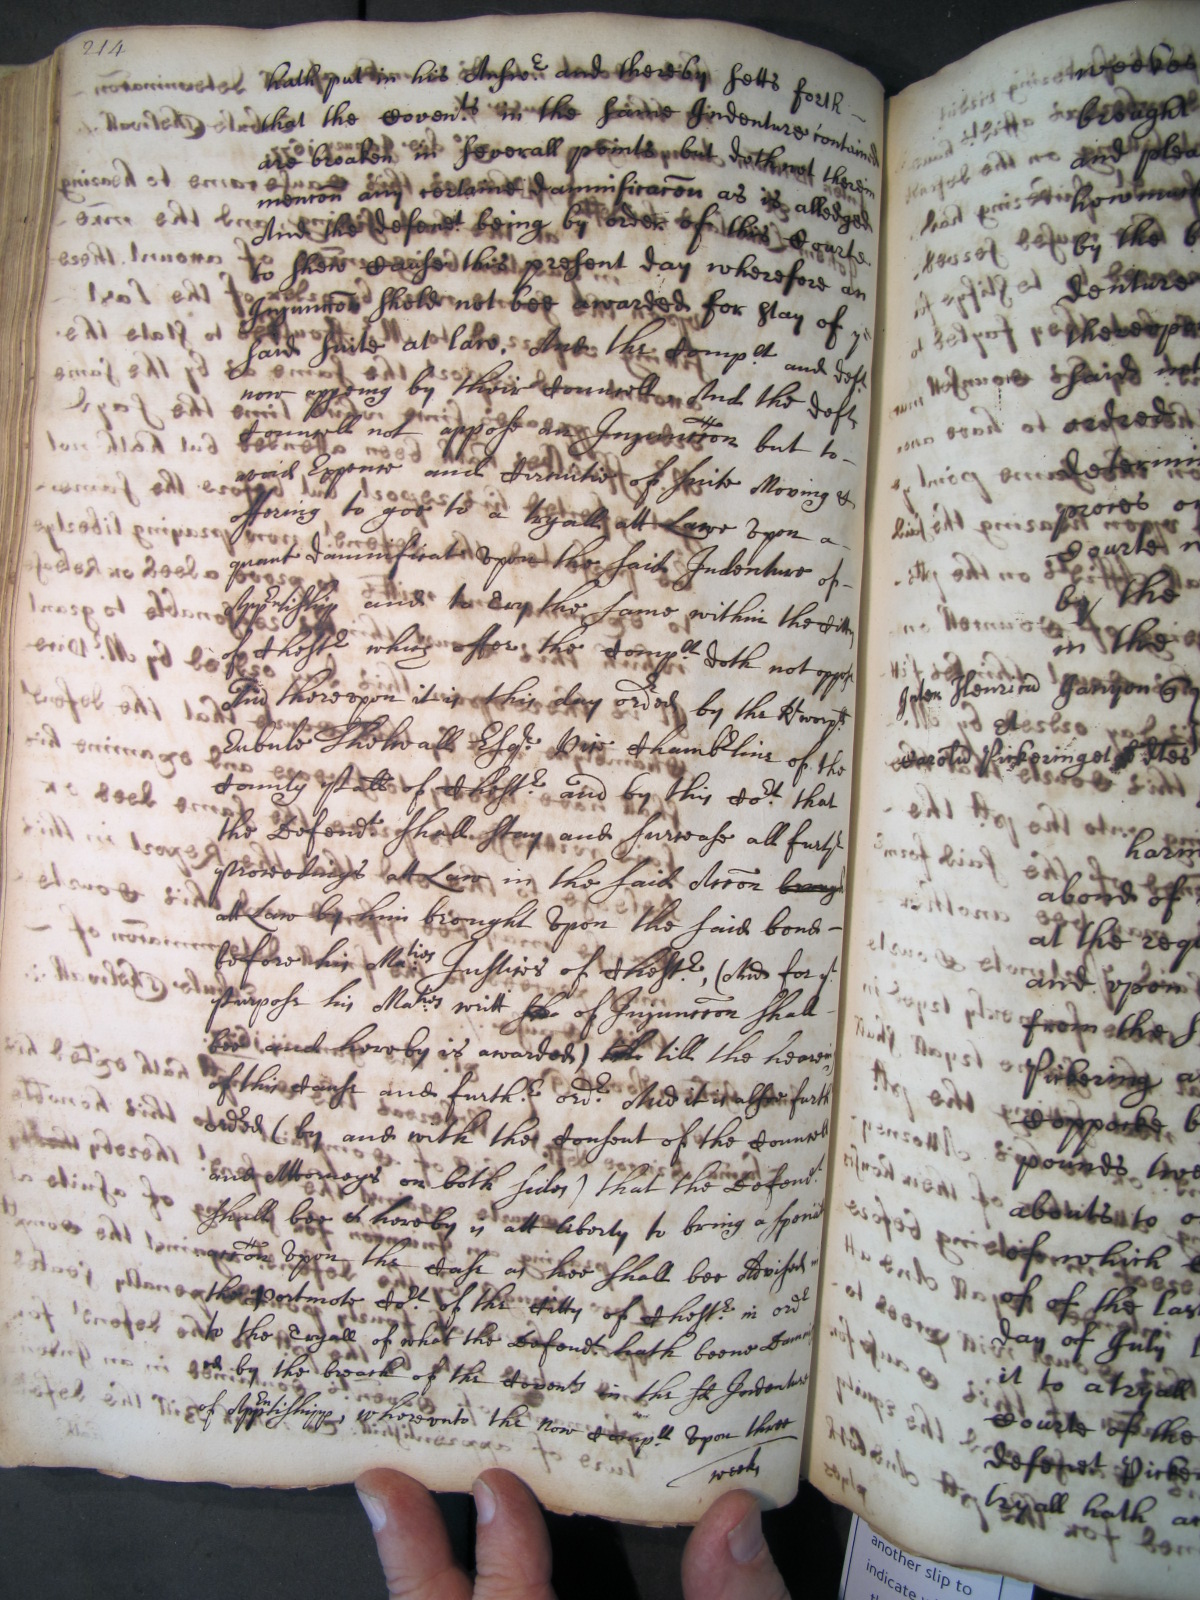 214
hath put in his Answr and thereby setts forth
that the Covents in the same Indenture contained
are broaken in severall points but doth not therein
mencon any certaine damnificacon as is alledged
And the defendt being by order of this Courte
to shew cause this present day wherefore an
Injunccon shold not bee awarded for stay of ye
said suite at lawe. And the Compt and deft
now appeing by their Councell And the defts
Councell not oppose an Injunccon but to
avoid Expence and Circuitie of suite Moving &
offering to goe to a tryall att Lawe upon a
quant damnificat upon the said Indenture of
Apprentiship and to try the same within the Citty
of Chestr which offer the Complt doth not oppose
And thereupon it is this day ordred by the Rt worpll
Eubule Thelwall Esqr Vice Chambline of the
County pallt of Chestr and by this Cort that
the Defendt shall stay and surcease all furthr
proceedings att Law in the said Accon broug
att Law by him brought upon the said bond
before his Maties Justices of Chestr, (And for yt
purpose his Maties writt of Injunccon shall
bee and hereby is awarded) till the hearing
of this Cause and furthr ordr And it is alsoe furth
ordred (by and with the Consent of the Councell
and Attorneys on both sides) that the Defendt
shall bee & hereby is att liberty to bring a speciall
accon upon the Case as hee shall bee Advised in
the Portmote Cort of the Citty of Chestr in ordr
to the tryall of what the Defendt hath beene Damni
ed by the breach of the Covents in the sd Indenture
of Apprentishipp, whereunto the now Complt upon three
weeks
weekes
brought
and plea
how
by the
denture
thereupo
said
ordred
determin
proces
Courte
by the
in the
Johen Henricu
et
Pickeringe
harm
abond of
at the req
and upon
from the
Pickering
Coppocke
pounds
abouts to
of which
of of the las
day of July
it to a tryall
Courte of the
defendt Picke
tryall hath
another slip to
indicate